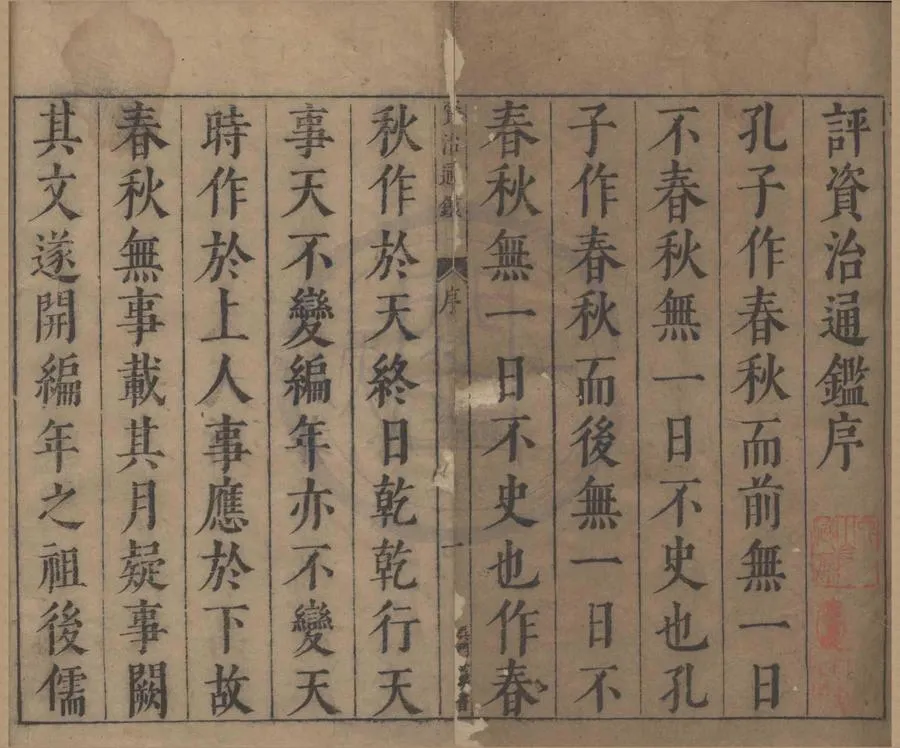 評資治通鑑序
孔子作春秋而前無一日
不春秋無一日不史也孔
子作春秋而後無一日不
春秋無一日不史也作春
資治通鑑
序
一
秋作於天終日乾乾行天
事天不變編年亦不變天
時作於上人事應於下故
春秋無事載其月疑事闕
其文遂開編年之祖後儒